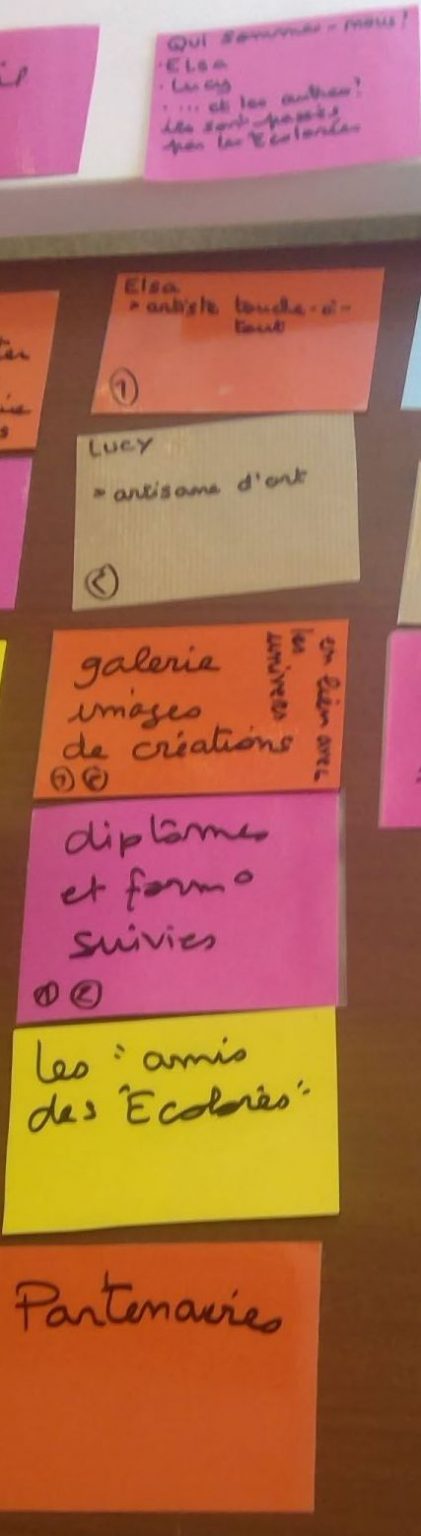 Qui sommes-nous?
· Elsa
· Lucy
· ... et les autres?
ils sont passés
par les Ecolorés
Elsa
> artiste touche-à-
tout
1
Lucy
> artisane d'art
2
galerie
images
de créations
1 2
en lien avec
les
univers
diplômes
et form°
suivies
1 2
Les "amis
des Ecolorés"
Partenaires